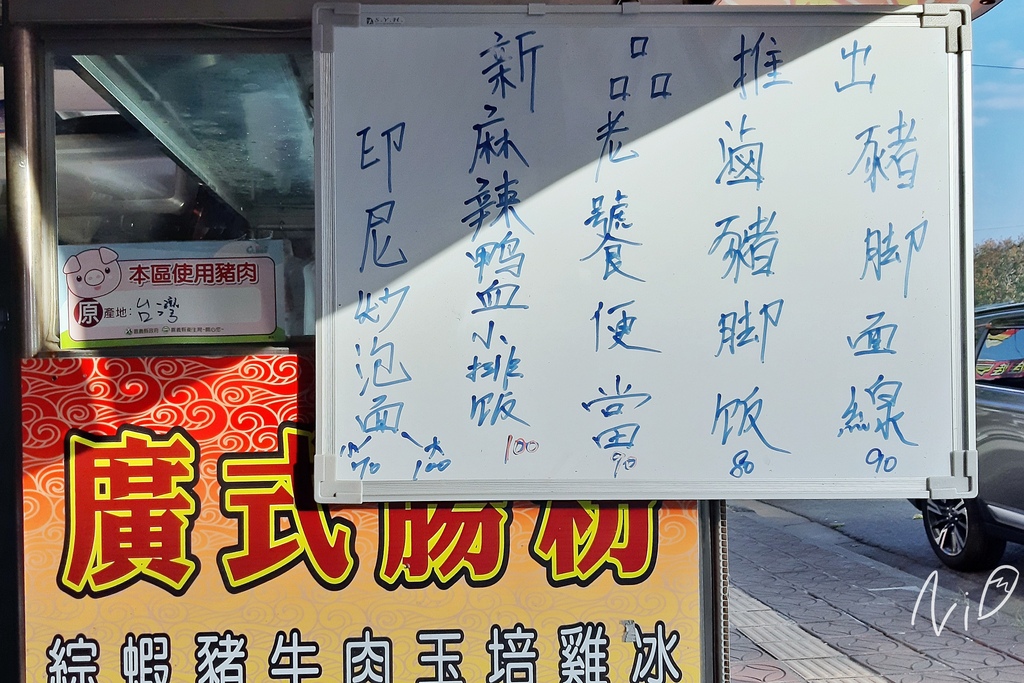 新品推出
豬脚面線
90
滷豬脚饭
80
老饕便當
90
麻辣鸭血小排饭
100
印尼炒泡面
小 70
大 100
S.Y.H.
本區使用豬肉
原產地:台灣
廣式腸粉
綜蝦豬牛肉玉培雞冰
NiD